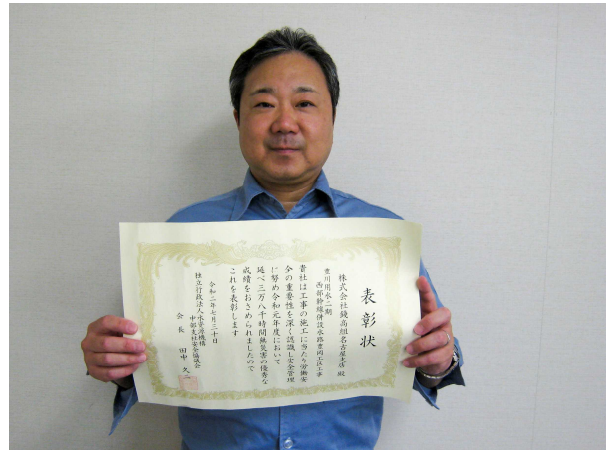 表彰状
株式会社錢高組名古屋支店 殿
豊川用水二期
西部幹線併設水路豊岡工区工事
貴社は工事の施工に当たり労働安
全の重要性を深く認識し安全管理
に努め令和元年度において
延べ三万八千時間無災害の優秀な
成績をおさめられましたので
これを表彰します
令和二年七月三十日
独立行政法人水資源機構
中部支社安全協議会
会長 田中 久